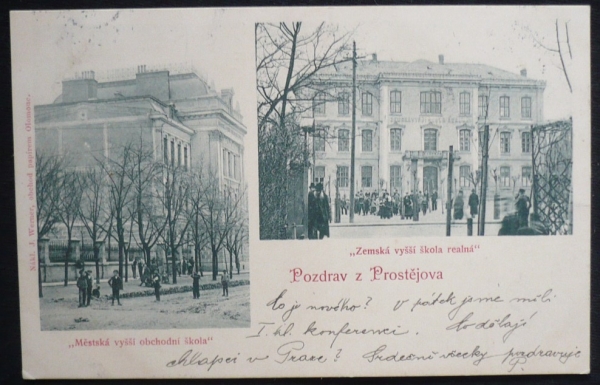 Nákl. J. Werner, obchod papírem, Olomouc.
"Zemská vyšší škola realná"
Pozdrav z Prostějova
"Městská vyšší obchodní škola"
Co je nového? V pátek jsme měli
I. kl. konferenci. Co dělají
chlapci v Praze? Srdečně všecky pozdravuje